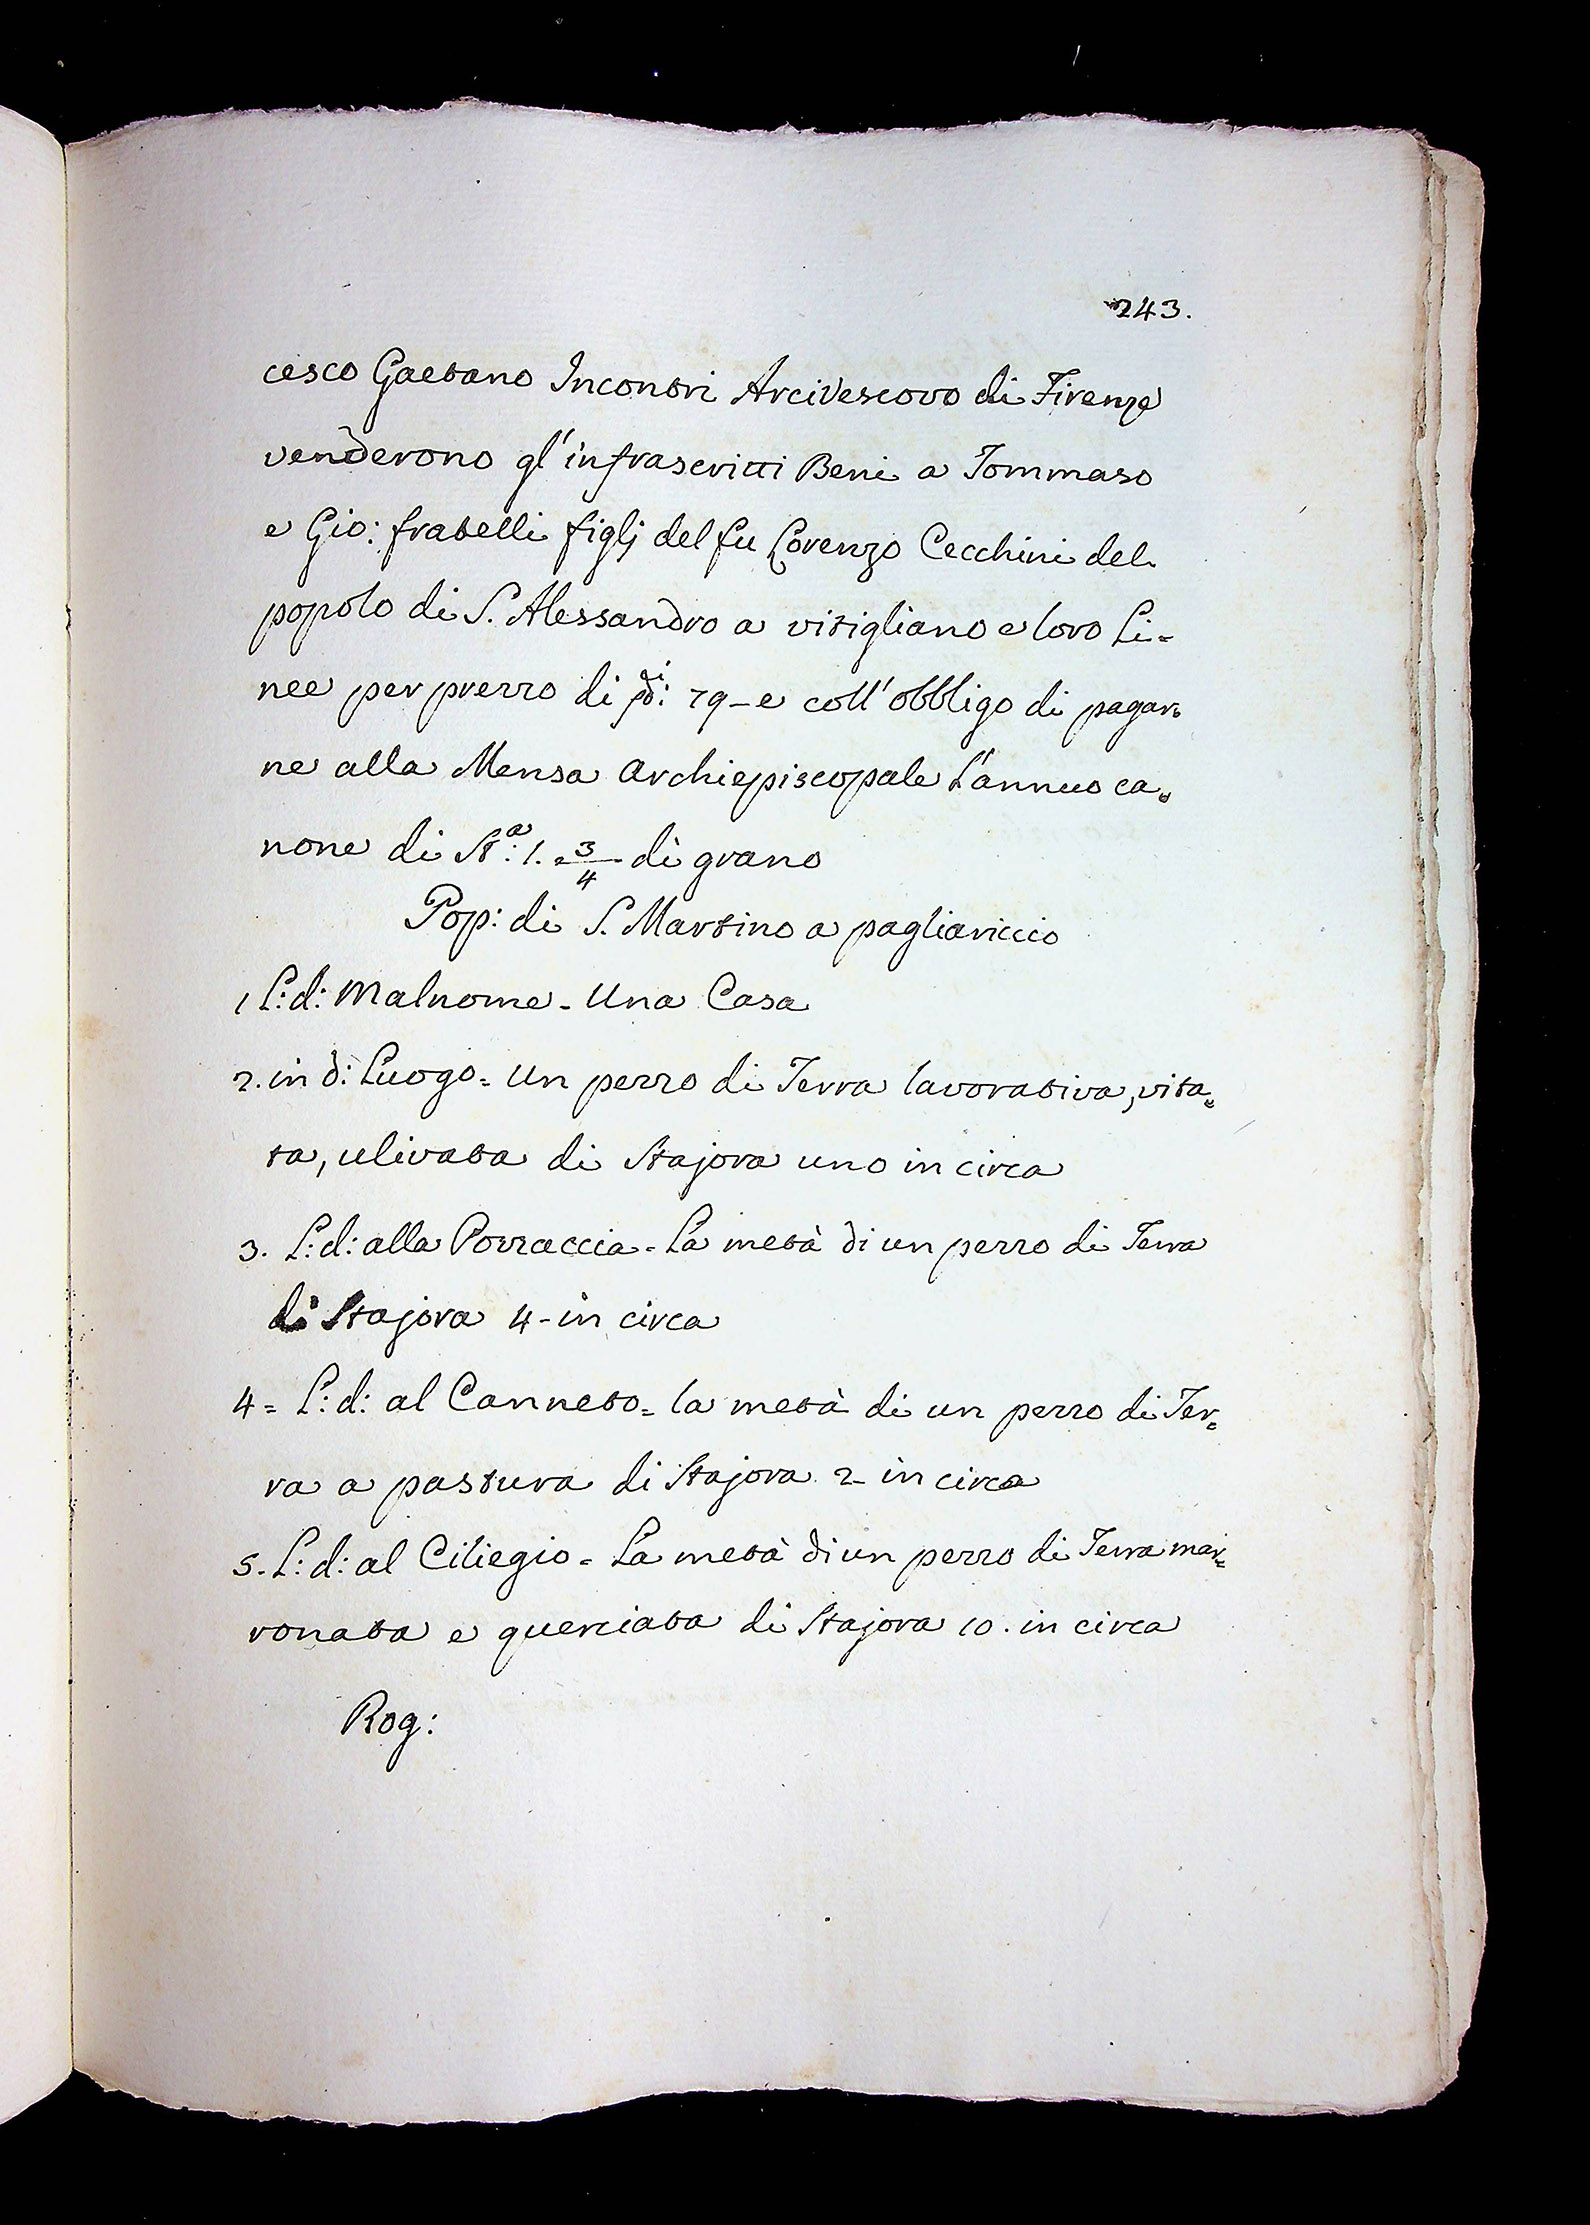 243.
cesco Gaetano Incontri Arcivescovo di Firenze
venderono gl'infrascritti Beni a Tommaso
e Gio: fratelli figlj del fu Lorenzo Cecchini del
popolo di S. Alessandro a vitigliano e loro Li=
nee per prezzo di 79 - e coll'obbligo di pagar=
ne alla Mensa Archiepiscopale l'annuo ca=
none di St:ª 1. 3/4 di grano
Pop: di S. Martino a pagliariccio
1 L: d: Malnome - Una Casa
2. in d: Luogo = Un pezzo di Terra lavorativa, vita=
ta, ulivata di Stajora uno in circa
3. L: d: alla Porraccia - La metà di un pezzo di Terra
di Stajora 4 - in circa
4 = L: d: al Canneto = la metà di un pezzo di Ter=
ra a pastura di Stajora 2 - in circa
5. L: d: al Ciliegio - La metà di un pezzo di Terra mar=
ronata e querciata di Stajora 10. in circa
Rog: